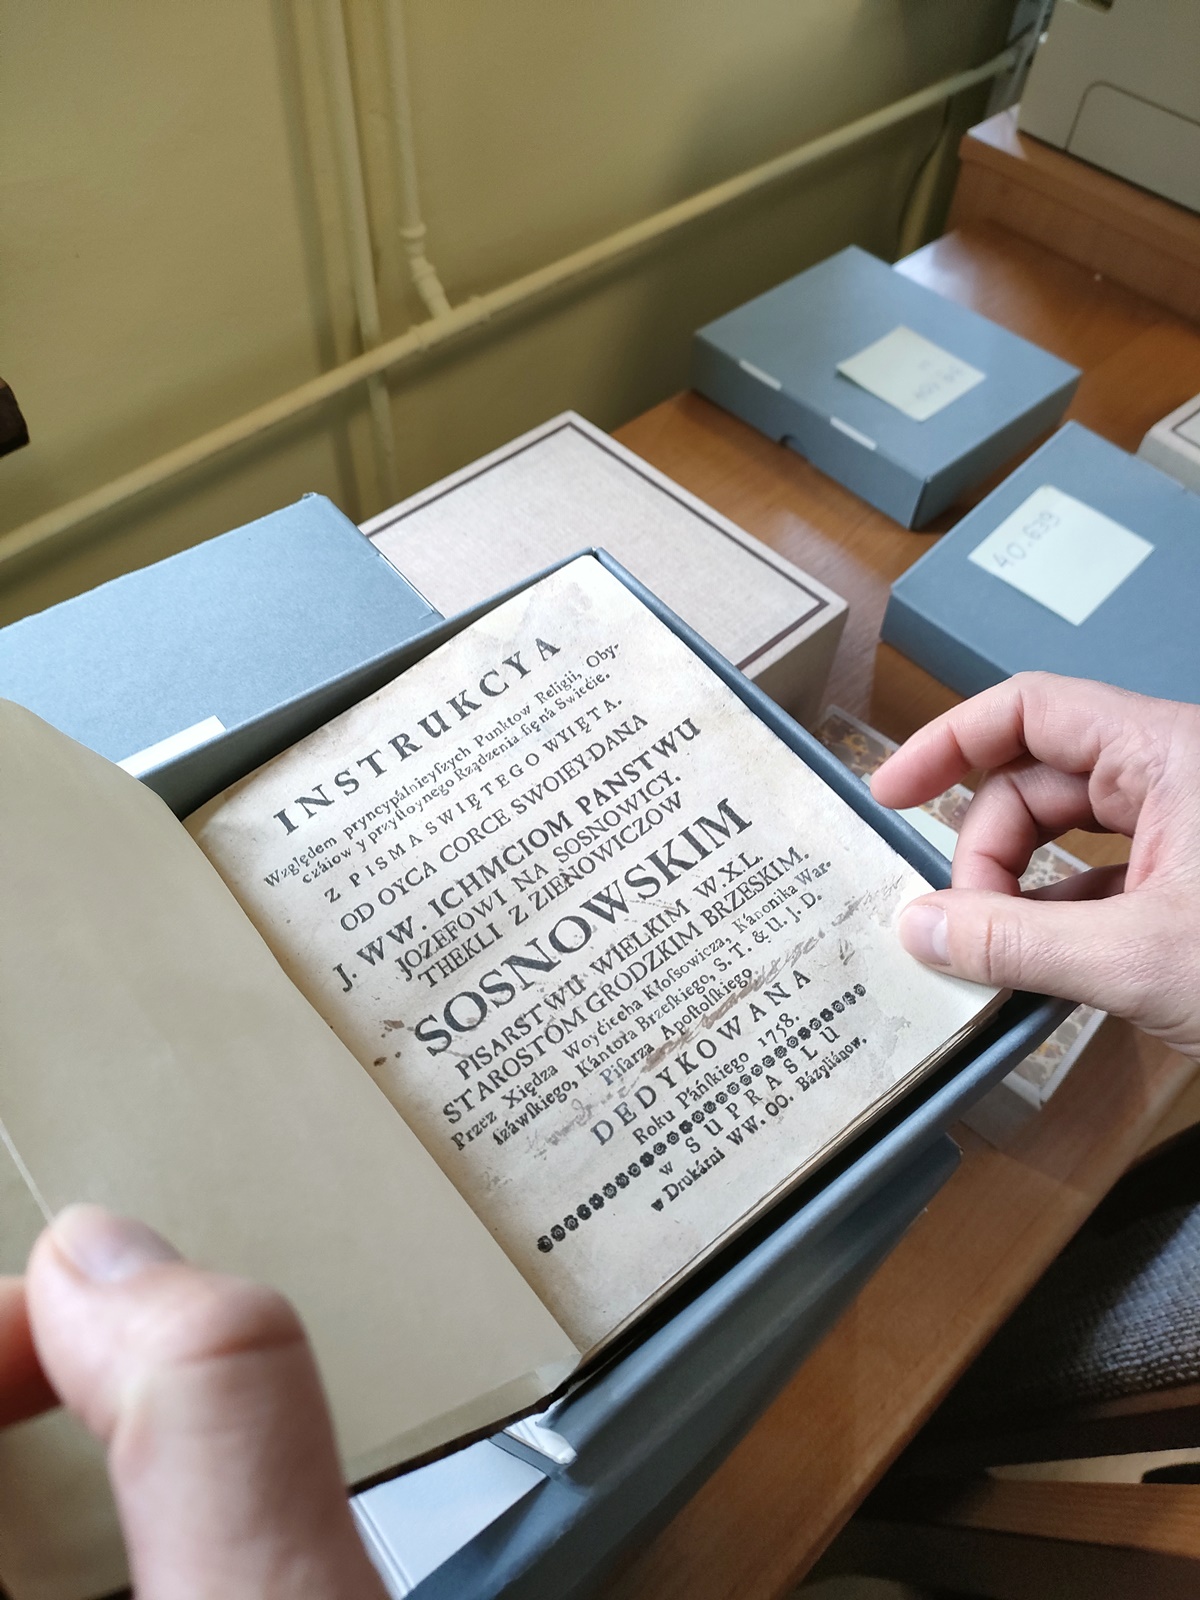 INSTRUKCYA
Względem pryncypálnieyſzych Punktow Religii, Oby-
czáiow y przyſtoynego Rządzenia ſię ná Swiecie.
Z PISMA SWIĘTEGO WYIĘTA.
OD OYCA CORCE SWOIEY DANA
J. WW. ICHMCIOM PANSTWU
JOZEFOWI NA SOSNOWICY.
THEKLI Z ZIENOWICZOW
SOSNOWSKIM
PISARSTWU WIELKIM W.X.L.
STAROSTOM GRODZKIM BRZESKIM.
Przez Xiędza Woyciecha Kłoſsowicza, Kánonika War-
ſzáwſkiego, Kántora Brzeſkiego, S. T. & U. J. D.
Piſarza Apoſtolſkiego
DEDYKOWANA
Roku Páńſkiego 1758.
w SUPRASLU
w Drukárni WW. OO. Bázyliánow.
40.639